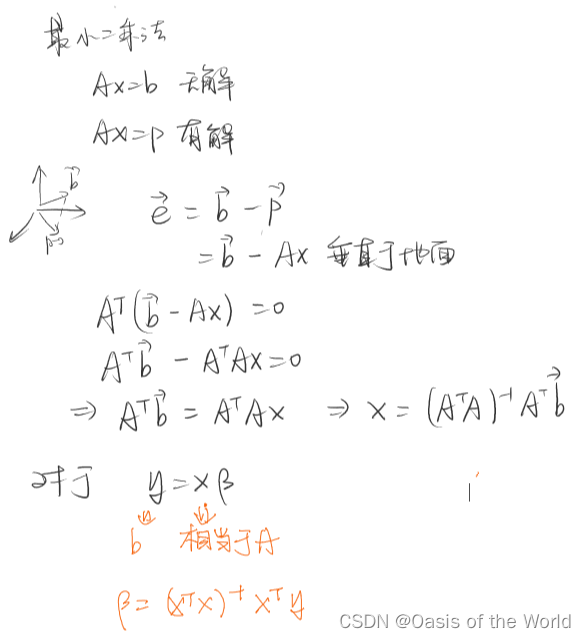 最小二乘法
Ax=b 无解
Ax=p 有解
b⃗
p⃗
e⃗ = b⃗ - p⃗
= b⃗ - Ax 垂直于地面
Aᵀ(b⃗ - Ax) = 0
Aᵀb⃗ - AᵀAx = 0
⇒ Aᵀb⃗ = AᵀAx ⇒ x = (AᵀA)⁻¹Aᵀb⃗
对于 y = xβ
b 相当于A
β = (xᵀx)⁻¹xᵀy
CSDN @Oasis of the World